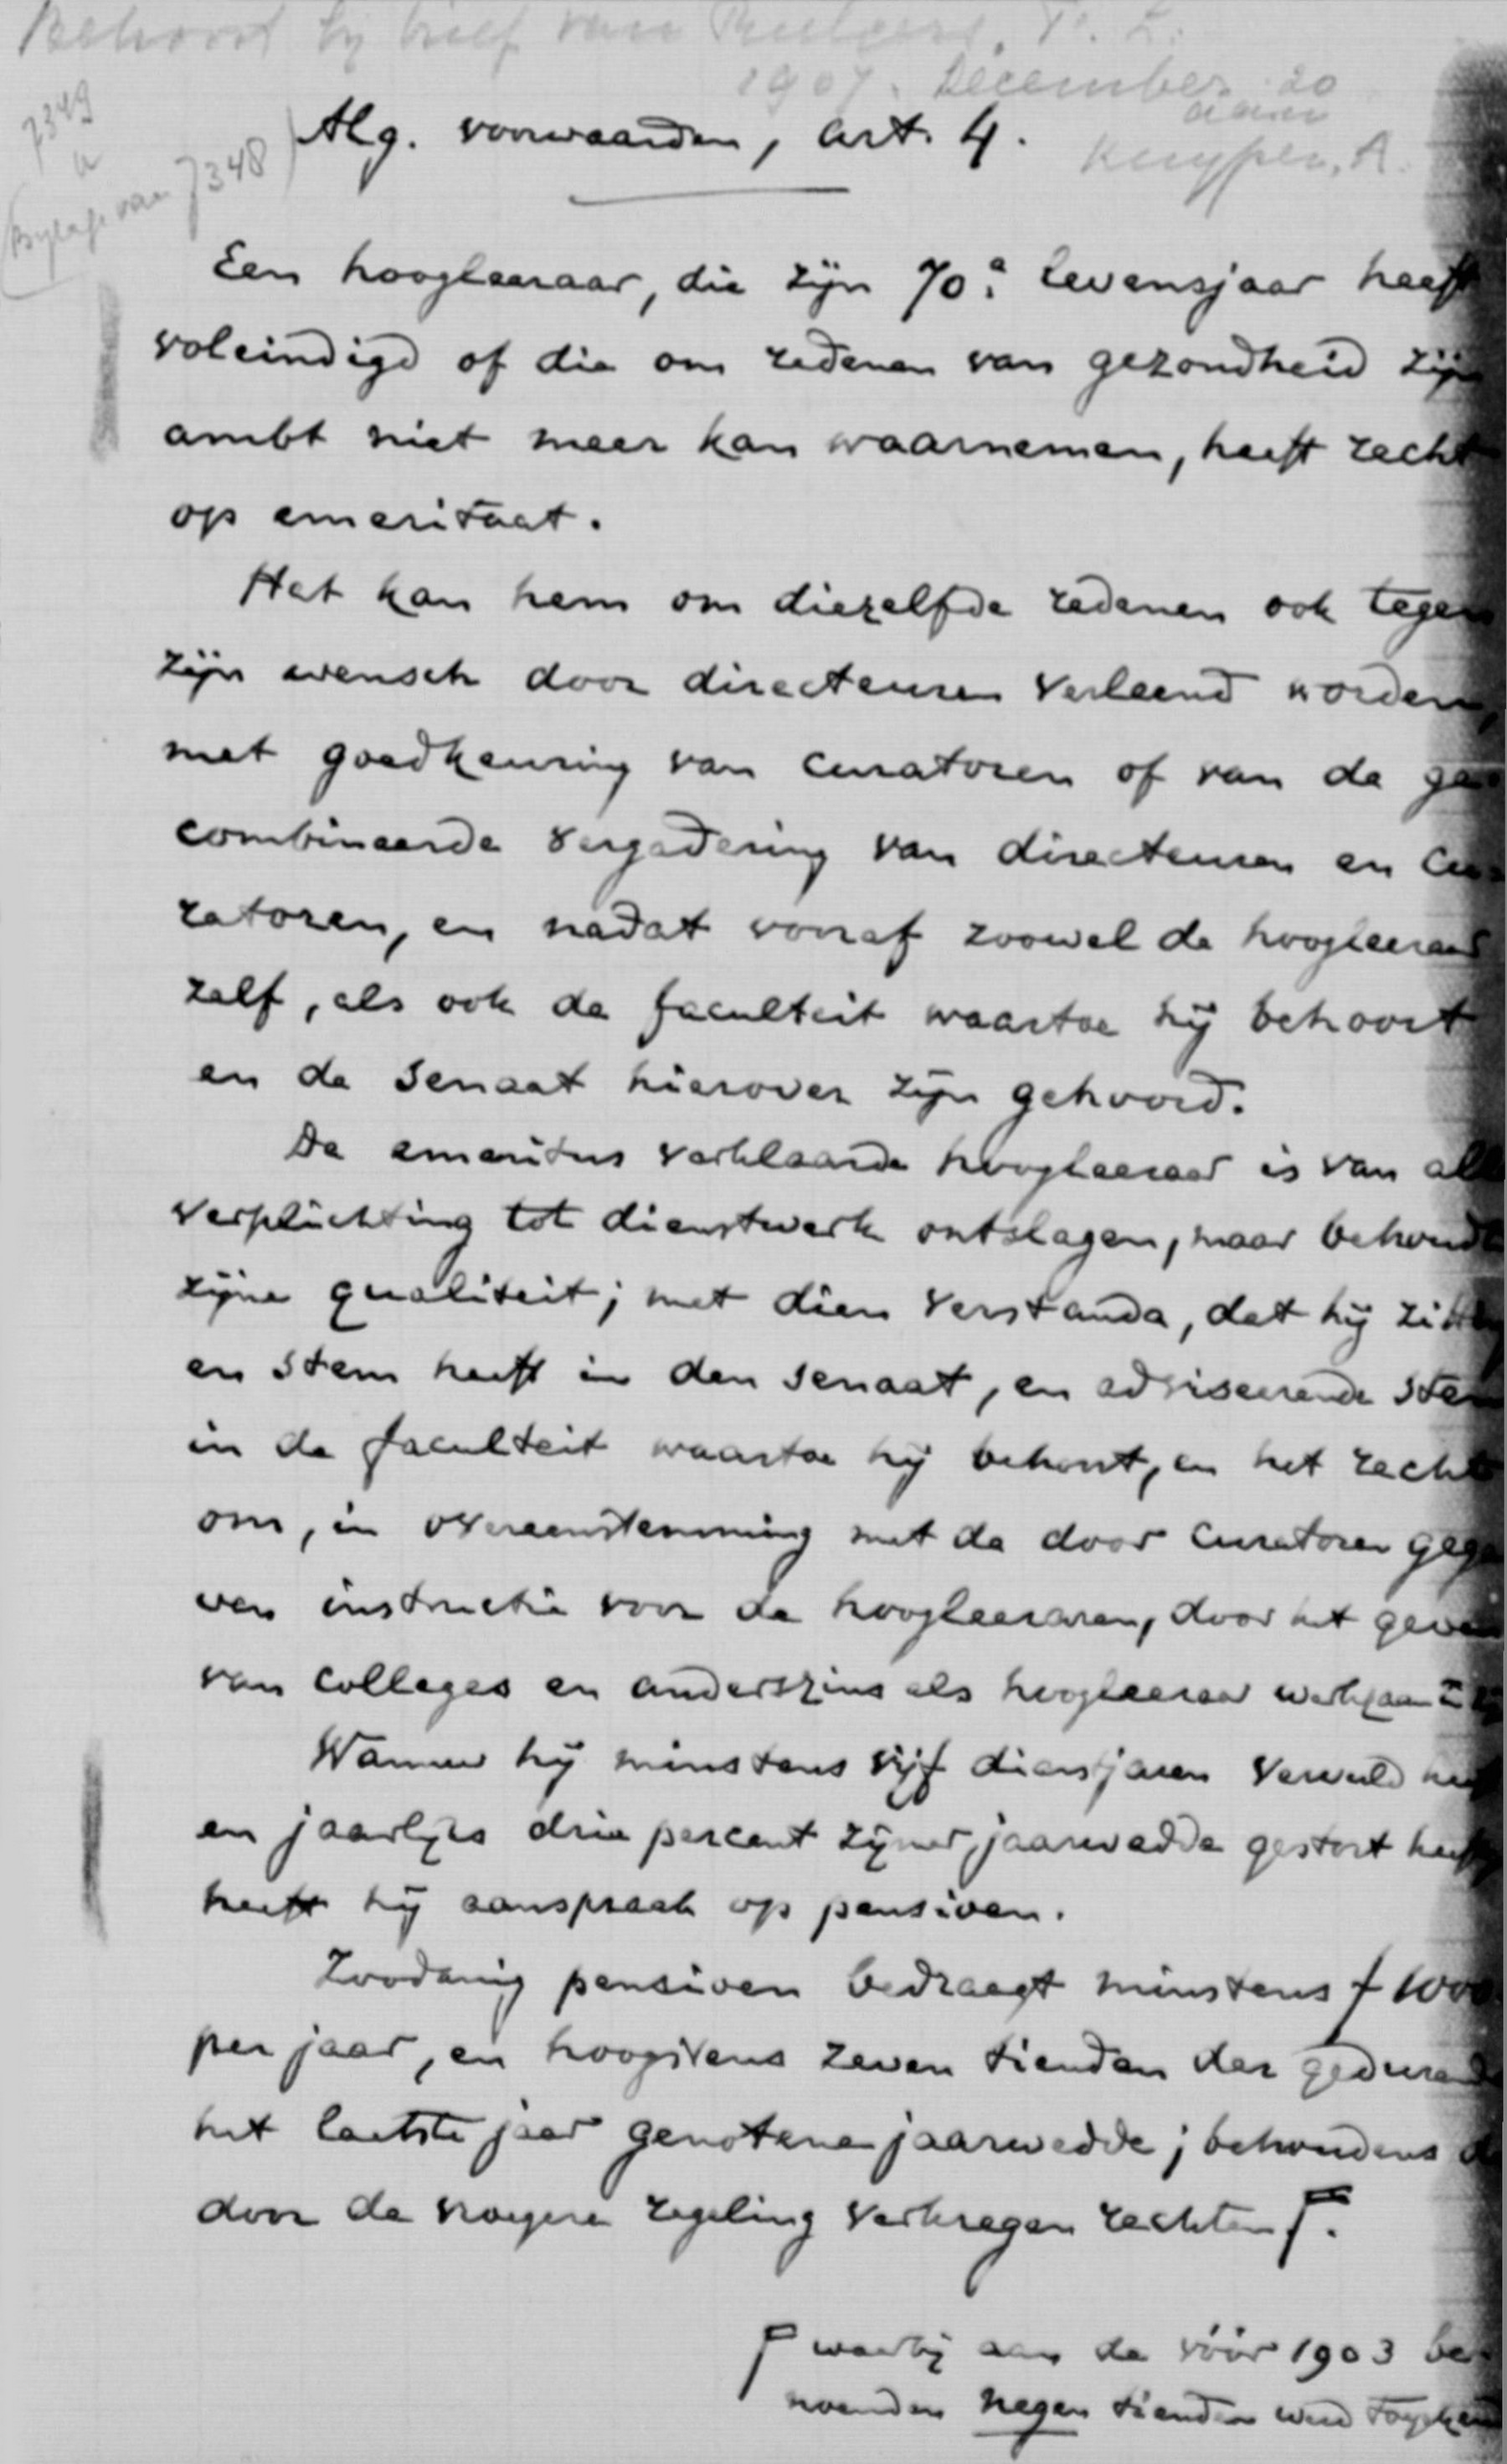 Behoort bij brief van Rutgers, F. L.
1907. December 20
aan
Kuyper, A.
7349
a
(Bylage van 7348)
Alg. voorwaarden, art. 4.
Een hoogleeraar, die zijn 70e levensjaar heeft
voleindigd of die om redenen van gezondheid zijn
ambt niet meer kan waarnemen, heeft recht
op emeritaat.
Het kan hem om diezelfde redenen ook tegen
zijn wensch door directeuren verleend worden,
met goedkeuring van curatoren of van de ge-
combineerde vergadering van directeuren en cu-
ratoren, en nadat vooraf zoowel de hoogleeraar
zelf, als ook de faculteit waartoe hij behoort
en de senaat hierover zijn gehoord.
De emeritus verklaarde hoogleeraar is van alle
verplichting tot dienstwerk ontslagen, maar behoudt
zijne qualiteit; met dien verstande, dat hij zitting
en stem heeft in den senaat, en adviseerende stem
in de faculteit waartoe hij behoort, en het recht
om, in overeenstemming met de door curatoren gege-
ven instructie voor de hoogleeraren, door het geven
van colleges en anderszins als hoogleeraar werkzaam te zijn
Wanneer hij minstens vijf dienstjaren vervuld heeft
en jaarlijks drie percent zijner jaarwedde gestort heeft,
heeft hij aanspraak op pensioen.
Zoodanig pensioen bedraagt minstens ƒ 1000
per jaar, en hoogstens zeven tienden der gedurende
het laatste jaar genotene jaarwedde; behoudens de
door de vroegere regeling verkregen rechten ┌.
┌ waarbij aan de vóór 1903 be-
noemden negen tienden werd toegekend